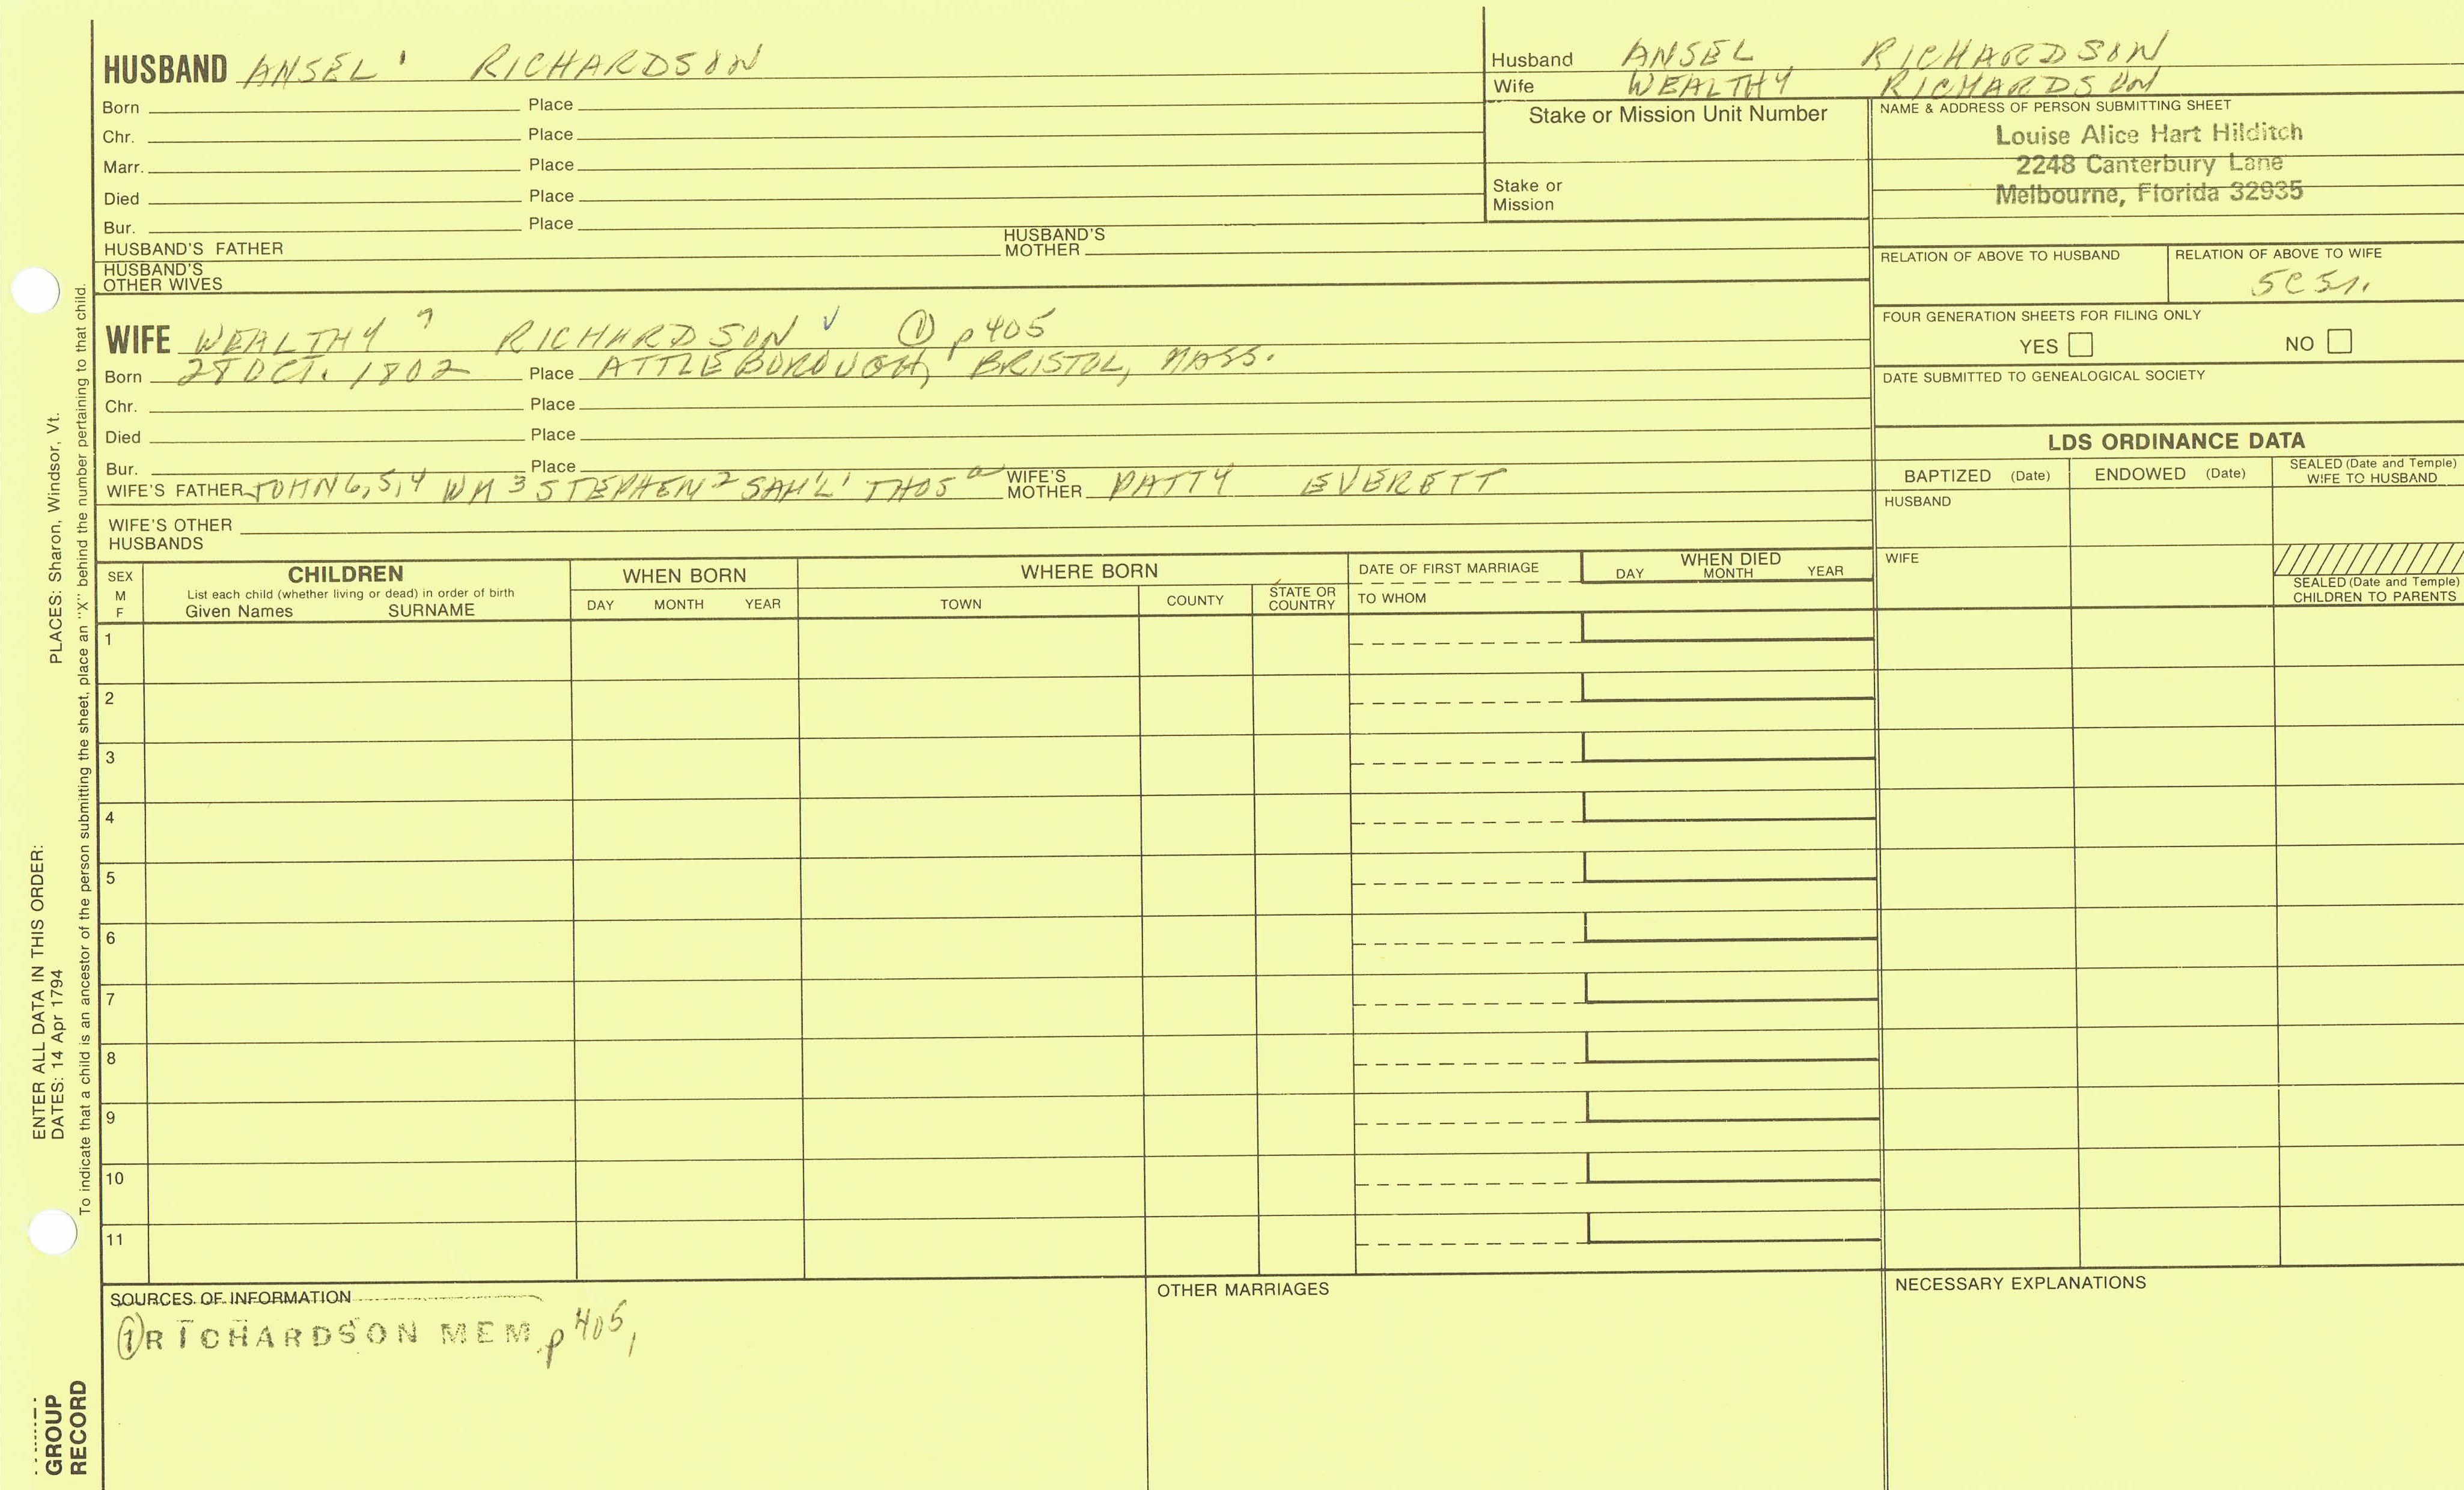 HUSBAND ANSEL ' RICHARDSON
Born Place
Chr. Place
Marr. Place
Died Place
Bur. Place
HUSBAND'S FATHER HUSBAND'S MOTHER
HUSBAND'S OTHER WIVES
Husband ANSEL, RICHARDSON
Wife WEALTHY RICHARDSON
Stake or Mission Unit Number
Stake or Mission
NAME & ADDRESS OF PERSON SUBMITTING SHEET
Louise Alice Hart Hilditch
2248 Canterbury Lane
Melbourne, Florida 32935
RELATION OF ABOVE TO HUSBAND
RELATION OF ABOVE TO WIFE
FOUR GENERATION SHEETS FOR FILING ONLY
YES NO
DATE SUBMITTED TO GENEALOGICAL SOCIETY
WIFE WEALTHY 7 RICHARDSON √ ① p405
Born 28 OCT. 1802 Place ATTLEBOROUGH, BRISTOL, MASS.
Chr. Place
Died Place
Bur. Place
WIFE'S FATHER JOHN 6,5,4 WM 3 STEPHEN 2 SAM'L 1 THOS a WIFE'S MOTHER PATTY EVERETT
WIFE'S OTHER HUSBANDS
LDS ORDINANCE DATA
BAPTIZED (Date) ENDOWED (Date) SEALED (Date and Temple) WIFE TO HUSBAND
HUSBAND
WIFE
SEALED (Date and Temple) CHILDREN TO PARENTS
SEX M F
CHILDREN
List each child (whether living or dead) in order of birth
Given Names SURNAME
WHEN BORN
DAY MONTH YEAR
WHERE BORN
TOWN COUNTY STATE OR COUNTRY
DATE OF FIRST MARRIAGE
TO WHOM
WHEN DIED
DAY MONTH YEAR
1
2
3
4
5
6
7
8
9
10
11
SOURCES OF INFORMATION
① RICHARDSON MEM. p405,
OTHER MARRIAGES
NECESSARY EXPLANATIONS
ENTER ALL DATA IN THIS ORDER:
DATES: 14 Apr 1794
PLACES: Sharon, Windsor, Vt.
To indicate that a child is an ancestor of the person submitting the sheet, place an "X" behind the number pertaining to that child.
GROUP
RECORD